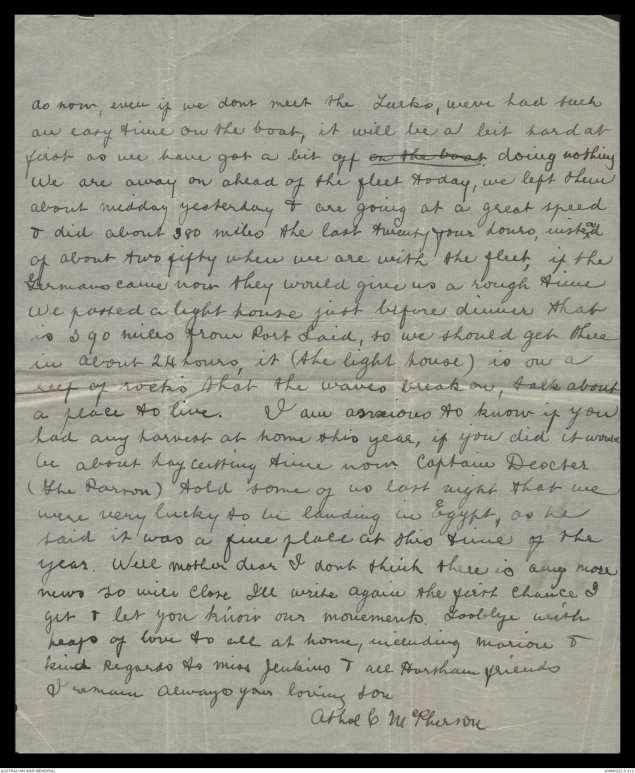 do now, even if we dont meet the Turks, weve had such
an easy time on the boat, it will be a bit hard at
first as we have got a bit off on the boat doing nothing
We are away on ahead of the fleet today, we left them
about midday yesterday & are going at a great speed
& did about 380 miles the last twenty four hours, instead
of about two fifty when we are with the fleet, if the
Germans came now they would give us a rough time
We passed a light house just before dinner that
is 390 miles from Port Said, so we should get there
in about 24 hours, it (the light house) is on a
reef of rocks that the waves break on, talk about
a place to live. I am anxious to know if you
had any harvest at home this year, if you did it would
be about hay cutting time now. Captain Dexter
(The Parson) told some of us last night that we
were very lucky to be landing in Egypt, as he
said it was a fine place at this time of the
year. Well mother dear I dont think there is any more
news so will close I'll write again the first chance I
get & let you know our movements. Goodbye with
heaps of love to all at home, including Marion &
kind regards to Miss Jenkins & all Horsham friends
I remain always your loving son
Athol C McPherson
AUSTRALIAN WAR MEMORIAL